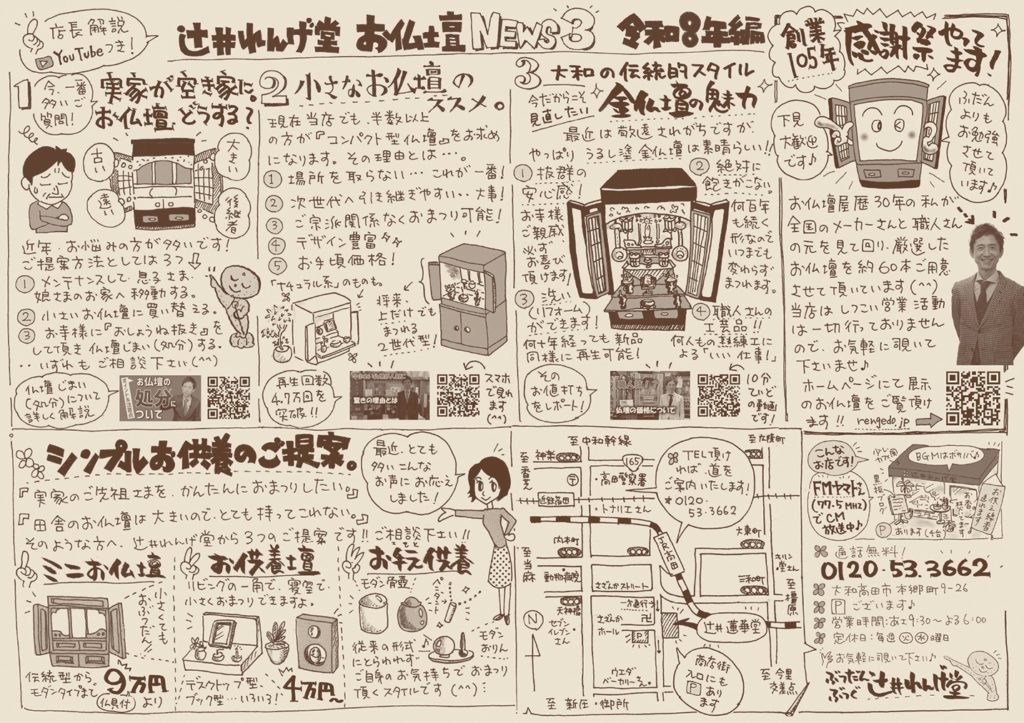 店長解説
YouTubeつき!
辻井れんげ堂 お仏壇 NEWS3 令和8年編
創業
105年
感謝祭やって
ます!
1
今、一番
多いご
質問!
実家が空き家に。
お仏壇、どうする?
古い
大きい
遠い
後継者
近年、お悩みの方が多いです!
ご提案方法としては3つ↓
① メンテナンスして、息子さま、
娘さまのお家へ移動する。
② 小さいお仏壇に買い替える。
③ お寺様に『おしょうね抜き』を
して頂き仏壇じまい(処分)する。
‥いずれもご相談下さい(^^)
仏壇じまい
(処分)について
詳しく解説
お仏壇の
処分に
ついて
2
小さなお仏壇の
ススメ。
現在当店でも、半数以上
の方が『コンパクト型仏壇』をお求め
になります。その理由とは…。
① 場所を取らない…これが一番!
② 次世代へ引き継ぎやすい‥大事!
③ ご宗派関係なくおまつり可能!
④ デザイン豊富
⑤ お手頃価格!
「ナチュラル系」のものも。
将来、
上だけでも
まつれる
2世代型!
再生回数
4.7万回を
突破!!
驚きの理由とは
スマホ
で見れ
ます
(^^)
3
大和の伝統的スタイル
今だからこそ
見直したい
金仏壇の魅力
最近は敬遠されがちですが、
やっぱりうるし塗金仏壇は素晴らしい!!
① 抜群の
安心感!
お寺様
ご親戚
必ず
お喜び
頂けます!
② 絶対に
飽きがこない。
何百年
も続く
形なので
いつまでも
変わらず
まつれます。
③ 洗い
(リフォーム)
ができます!
何十年経っても新品
同様に再生可能!
④ 職人さんの
工芸品!!
何人もの熟練工に
よる「いい仕事!」
その
お値打ち
をレポート!
仏壇の価格について
10分
ていどの
動画です!
下見
大歓迎
です♪
ふだん
よりも
お勉強
させて
頂いて
います♪
お仏壇屋歴30年の私が
全国のメーカーさんと職人さん
の元を見て回り、厳選した
お仏壇を約60本ご用意
させて頂いています(^^)
当店はしつこい営業活動
は一切行っておりません
ので、お気軽に覗いて
下さいませ♪
ホームページにて展示
のお仏壇をご覧頂け
ます!! rengedo.jp
シンプルお供養のご提案。
最近、とても
多いこんな
お声にお応え
しました!
『実家のご先祖さまを、かんたんにおまつりしたい。』
『田舎のお仏壇は大きいので、とても持ってこれない。』
そのような方へ、辻井れんげ堂から3つのご提案です!!ご相談下さい!!
ミニお仏壇
小さくても
おぶつだん!!
伝統型から、
モダンタイプまで
9万円
(仏具付)より
お供養壇
リビングの一角で、寝室で、
小さくおまつりできますよ。
デスクトップ型、
ブック型…いろいろ!
4万円〜
お手元供養
モダン骨壺
ペンダント
モダン
おりん
従来の形式
にとらわれず…
ご自身のお気持ちでおまつり
頂くスタイルです(^^)…
至 中和幹線
至 香芝
神楽
165
高田警察署
〒
近鉄高田
トナリエさん
TEL頂け
れば、道を
ご案内いたします!
0120・
53・3662
至 広陵町
大東町
至 当麻
内本町
動物病院
天神橋
JR高田
さざんかストリート
一方通行
三和町
至 橿原
N
セブン
イレブン
さん
さざんか
ホール
卍
P
辻井蓮華堂
ウエダ
ベーカリーさん
商店街
入口にも
P あり
ます
至 新庄・御所
至 今里
交差点
こんな
お店です!
BGMはボサノバ♪
FMヤマト
(77.5MHz)
でCM
放送中♪
P あります(4台)
通話無料!
0120・53・3662
大和高田市本郷町9-26
P ございます♪
営業時間:あさ9:30〜よる6:00
定休日:毎週(火)(水)曜日
お気軽に覗いて下さい♪
ぶつだん
ぶつぐ
辻井れんげ堂